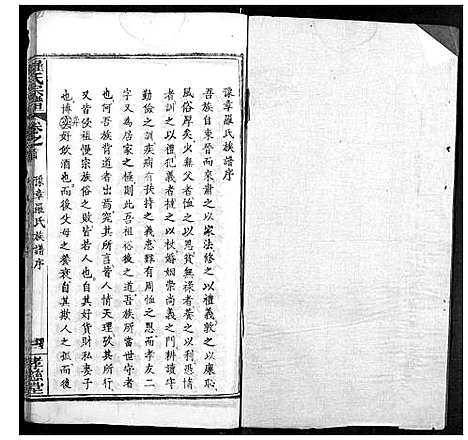 豫章羅氏族譜序
吾族自東晉而來肅之以家法修之以禮義敦之以廉恥
風俗厚矣火縣父者恤之以恩貧無祿者養之以利憑情
肆者訓之以禮犯義者撻之以杖婚姻崇尚義之門耕讀守
勤儉之訓疾病有扶持之義患難有周恤之恩而孝友二
字又為居家之極則此吾祖俗後之道吾族所當世守者
也何吾族背道者出焉究其所言人情天理攷其所行
又皆是侵祖慢宗族俗之敗皆若人也自其好貨財私妻子
也博奕好飲酒也而後父母之養衰自其欺人之孤而後
羅氏宗譜
卷之首
豫章羅氏族譜序